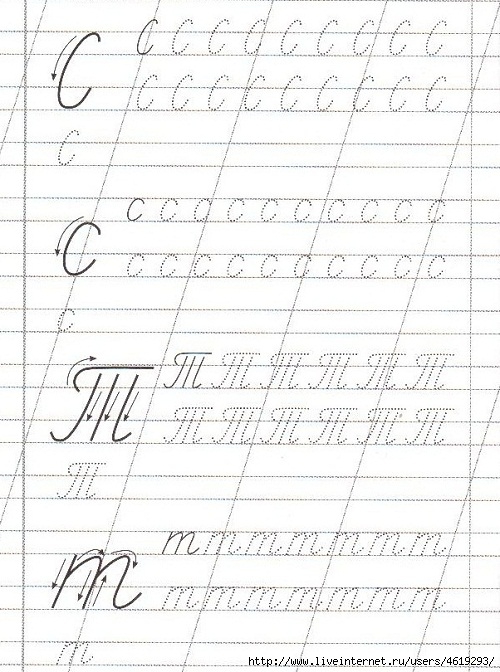 С
С С С С С С С С С
С С С С С С С С С
С
с
с с с с с с с с с с
с с с с с с с с с с
с
Т
Т Т Т Т Т Т
Т Т Т Т Т Т
Т
т
т т т т т т т
т т т т т т т
т
http://www.liveinternet.ru/users/4619293/